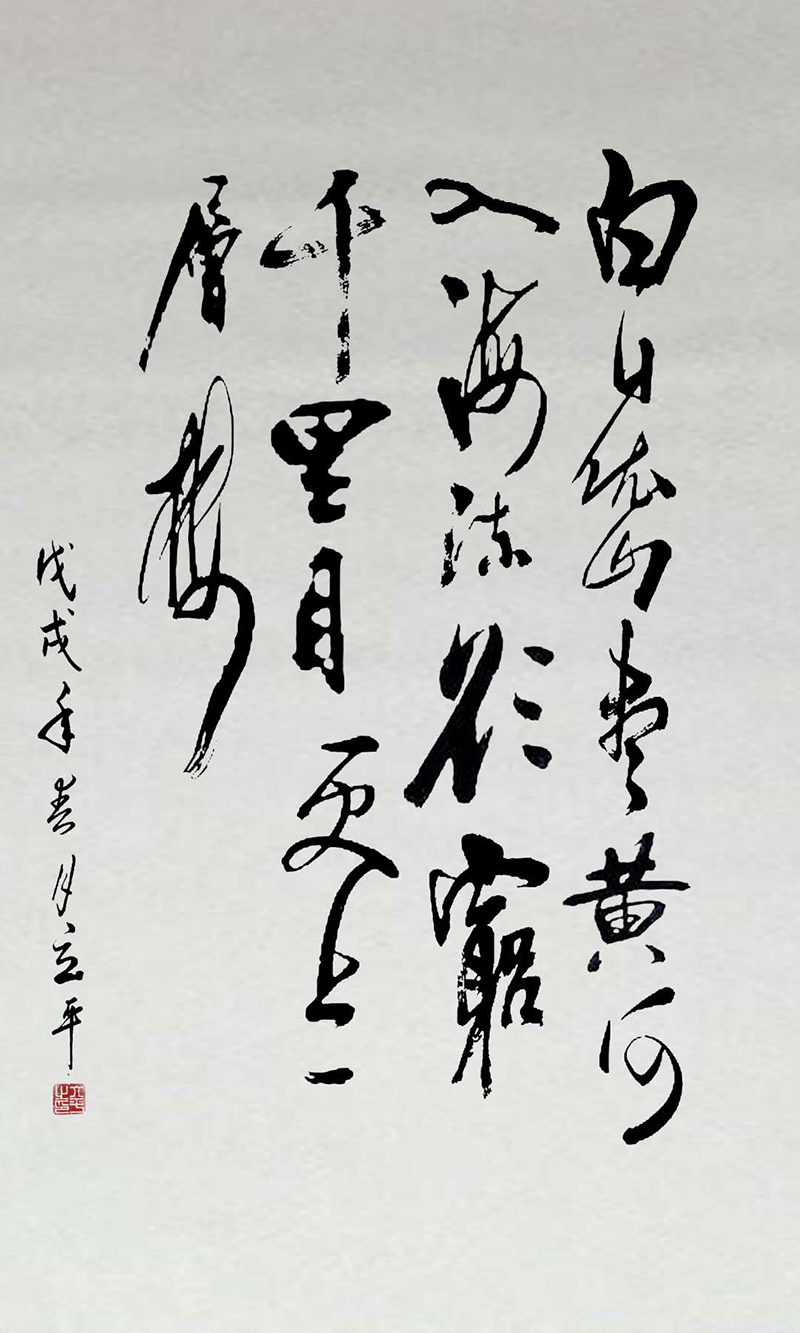 白日依山盡黄河
入海流欲窮
千里目更上一
層樓
戊戌年春月立平